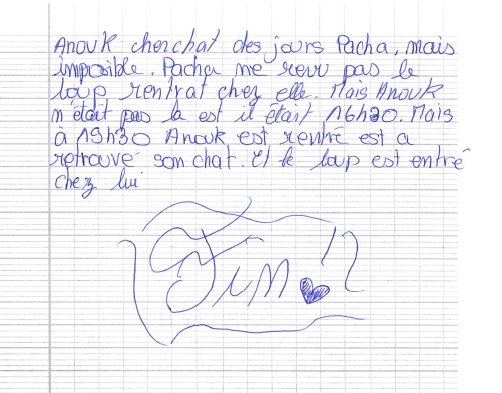 Anouk cherchat des jours Pacha, mais
imposible. Pacha me revu pas le
loup rentrat chez elle. Mais Anouk
n était pas la est il était 16h30. Mais
à 19h30 Anouk est rentré est a
retrouvé son chat. Et le loup est entré
chez lui
Fin.